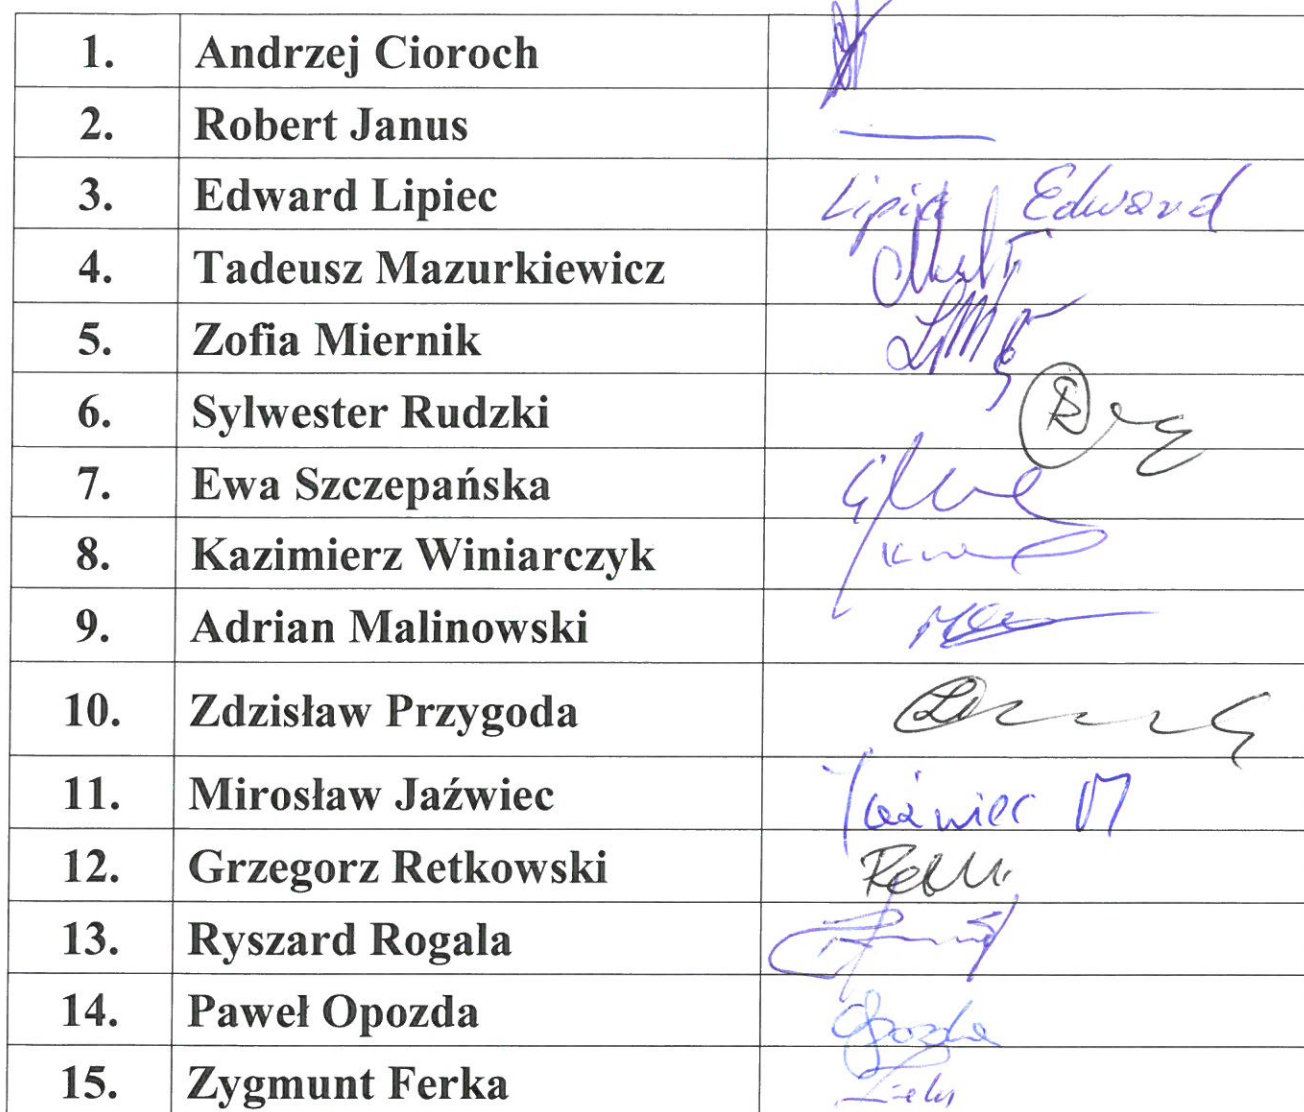 1. Andrzej Cioroch
2. Robert Janus
3. Edward Lipiec Lipiec Edward
4. Tadeusz Mazurkiewicz
5. Zofia Miernik
6. Sylwester Rudzki
7. Ewa Szczepańska
8. Kazimierz Winiarczyk
9. Adrian Malinowski
10. Zdzisław Przygoda
11. Mirosław Jaźwiec Jaźwiec M
12. Grzegorz Retkowski
13. Ryszard Rogala
14. Paweł Opozda Opozda
15. Zygmunt Ferka